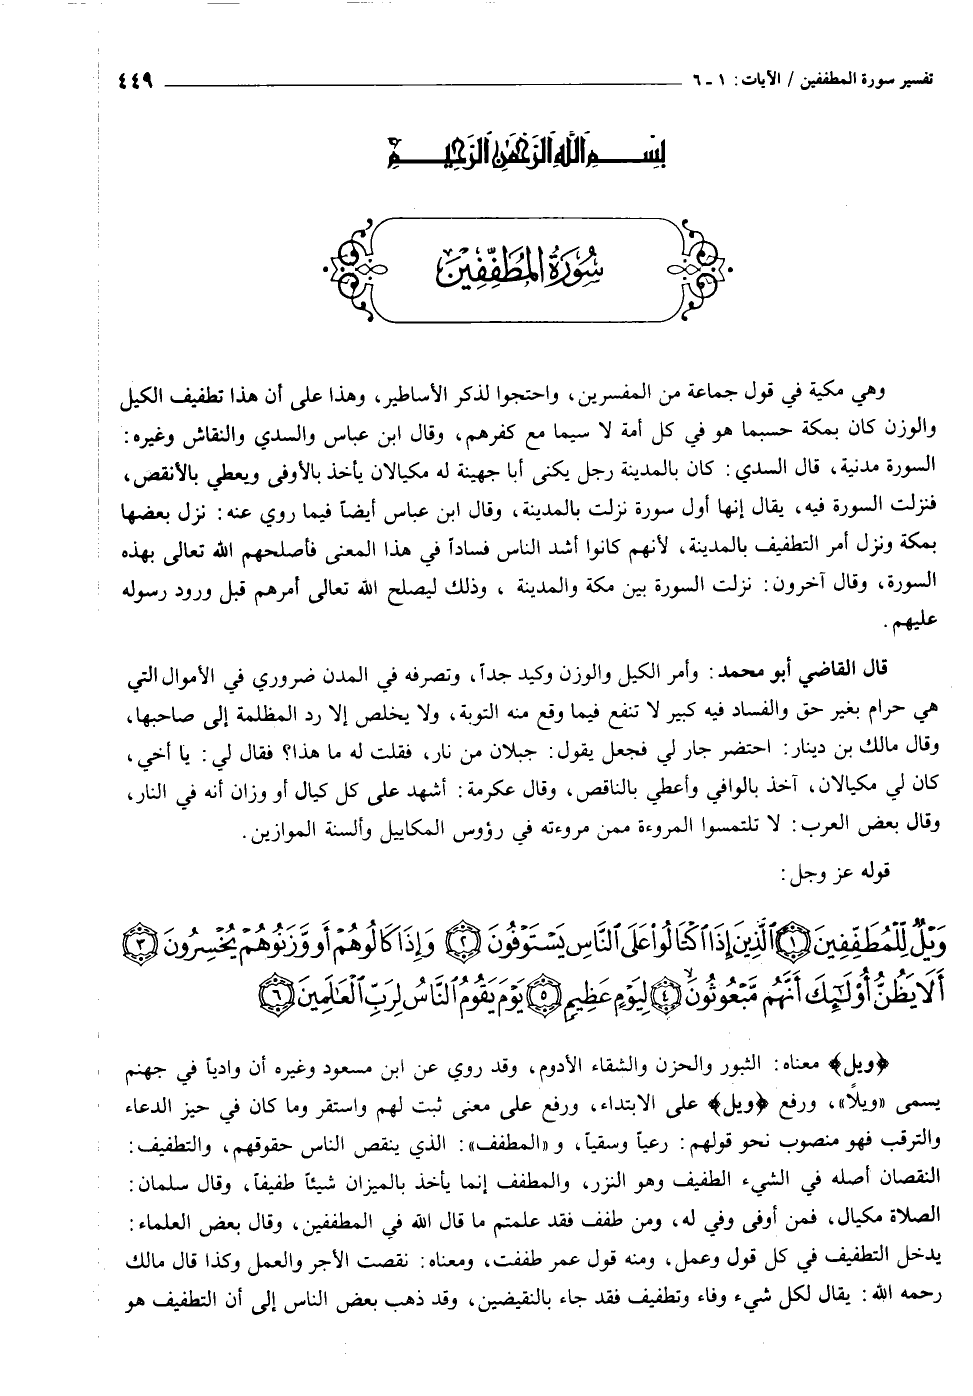 تفسير سورة المطففين / الآيات: ١ ـ ٦ ٤٤٩
بِسْمِ اللَّهِ الرَّحْمَنِ الرَّحِيمِ
سُورَةُ الْمُطَفِّفِينَ
وهي مكية في قول جماعة من المفسرين، واحتجوا لذكر الأساطير، وهذا على أن هذا تطفيف الكيل
والوزن كان بمكة حسبما هو في كل أمة لا سيما مع كفرهم، وقال ابن عباس والسدي والنقاش وغيره:
السورة مدنية، قال السدي: كان بالمدينة رجل يكنى أبا جهينة له مكيالان يأخذ بالأوفى ويعطي بالأنقص،
فنزلت السورة فيه، يقال إنها أول سورة نزلت بالمدينة، وقال ابن عباس أيضاً فيما روي عنه: نزل بعضها
بمكة ونزل أمر التطفيف بالمدينة، لأنهم كانوا أشد الناس فساداً في هذا المعنى فأصلحهم الله تعالى بهذه
السورة، وقال آخرون: نزلت السورة بين مكة والمدينة ، وذلك ليصلح الله تعالى أمرهم قبل ورود رسوله
عليهم.
قال القاضي أبو محمد: وأمر الكيل والوزن وكيد جداً، وتصرفه في المدن ضروري في الأموال التي
هي حرام بغير حق والفساد فيه كبير لا تنفع فيما وقع منه التوبة، ولا يخلص إلا رد المظلمة إلى صاحبها،
وقال مالك بن دينار: احتضر جار لي فجعل يقول: جبلان من نار، فقلت له ما هذا؟ فقال لي: يا أخي،
كان لي مكيالان، آخذ بالوافي وأعطي بالناقص، وقال عكرمة: أشهد على كل كيال أو وزان أنه في النار،
وقال بعض العرب: لا تلتمسوا المروءة ممن مروءته في رؤوس المكاييل وألسنة الموازين.
قوله عز وجل:
وَيْلٌ لِّلْمُطَفِّفِينَ ١ الَّذِينَ إِذَا اكْتَالُوا عَلَى النَّاسِ يَسْتَوْفُونَ ٢ وَإِذَا كَالُوهُمْ أَو وَّزَنُوهُمْ يُخْسِرُونَ ٣
أَلَا يَظُنُّ أُوْلَٰٓئِكَ أَنَّهُم مَّبْعُوثُونَ ٤ لِيَوْمٍ عَظِيمٍ ٥ يَوْمَ يَقُومُ النَّاسُ لِرَبِّ الْعَالَمِينَ ٦
﴿ويل﴾ معناه: الثبور والحزن والشقاء الأدوم، وقد روي عن ابن مسعود وغيره أن وادياً في جهنم
يسمى «ويلاً»، ورفع ﴿ويل﴾ على الابتداء، ورفع على معنى ثبت لهم واستقر وما كان في حيز الدعاء
والترقب فهو منصوب نحو قولهم: رعياً وسقياً، و «المطفف»: الذي ينقص الناس حقوقهم، والتطفيف:
النقصان أصله في الشيء الطفيف وهو النزر، والمطفف إنما يأخذ بالميزان شيئاً طفيفاً، وقال سلمان:
الصلاة مكيال، فمن أوفى وفي له، ومن طفف فقد علمتم ما قال الله في المطففين، وقال بعض العلماء:
يدخل التطفيف في كل قول وعمل، ومنه قول عمر طففت، ومعناه: نقصت الأجر والعمل وكذا قال مالك
رحمه الله: يقال لكل شيء وفاء وتطفيف فقد جاء بالنقيضين، وقد ذهب بعض الناس إلى أن التطفيف هو